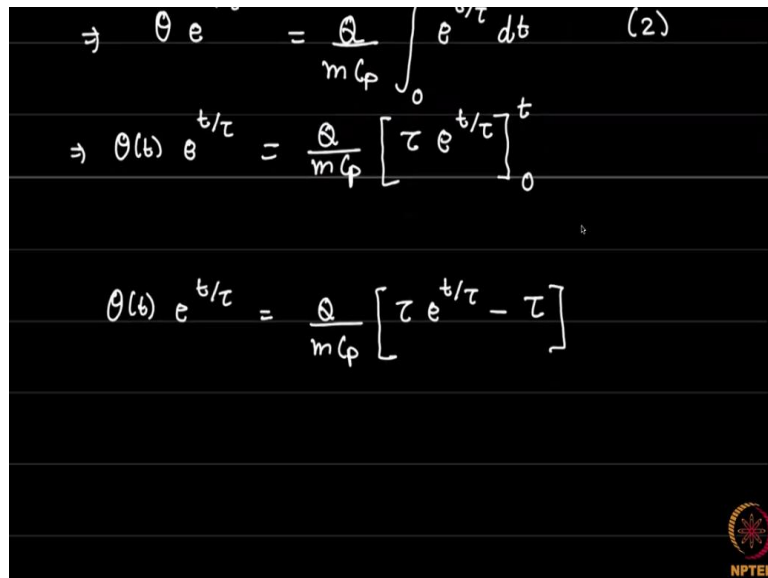 ⇒ θ e = Q/mCp ∫₀ e^{t/τ} dt (2)
⇒ θ(t) e^{t/τ} = Q/mCp [τ e^{t/τ}]₀^t
θ(t) e^{t/τ} = Q/mCp [τ e^{t/τ} - τ]
NPTEL